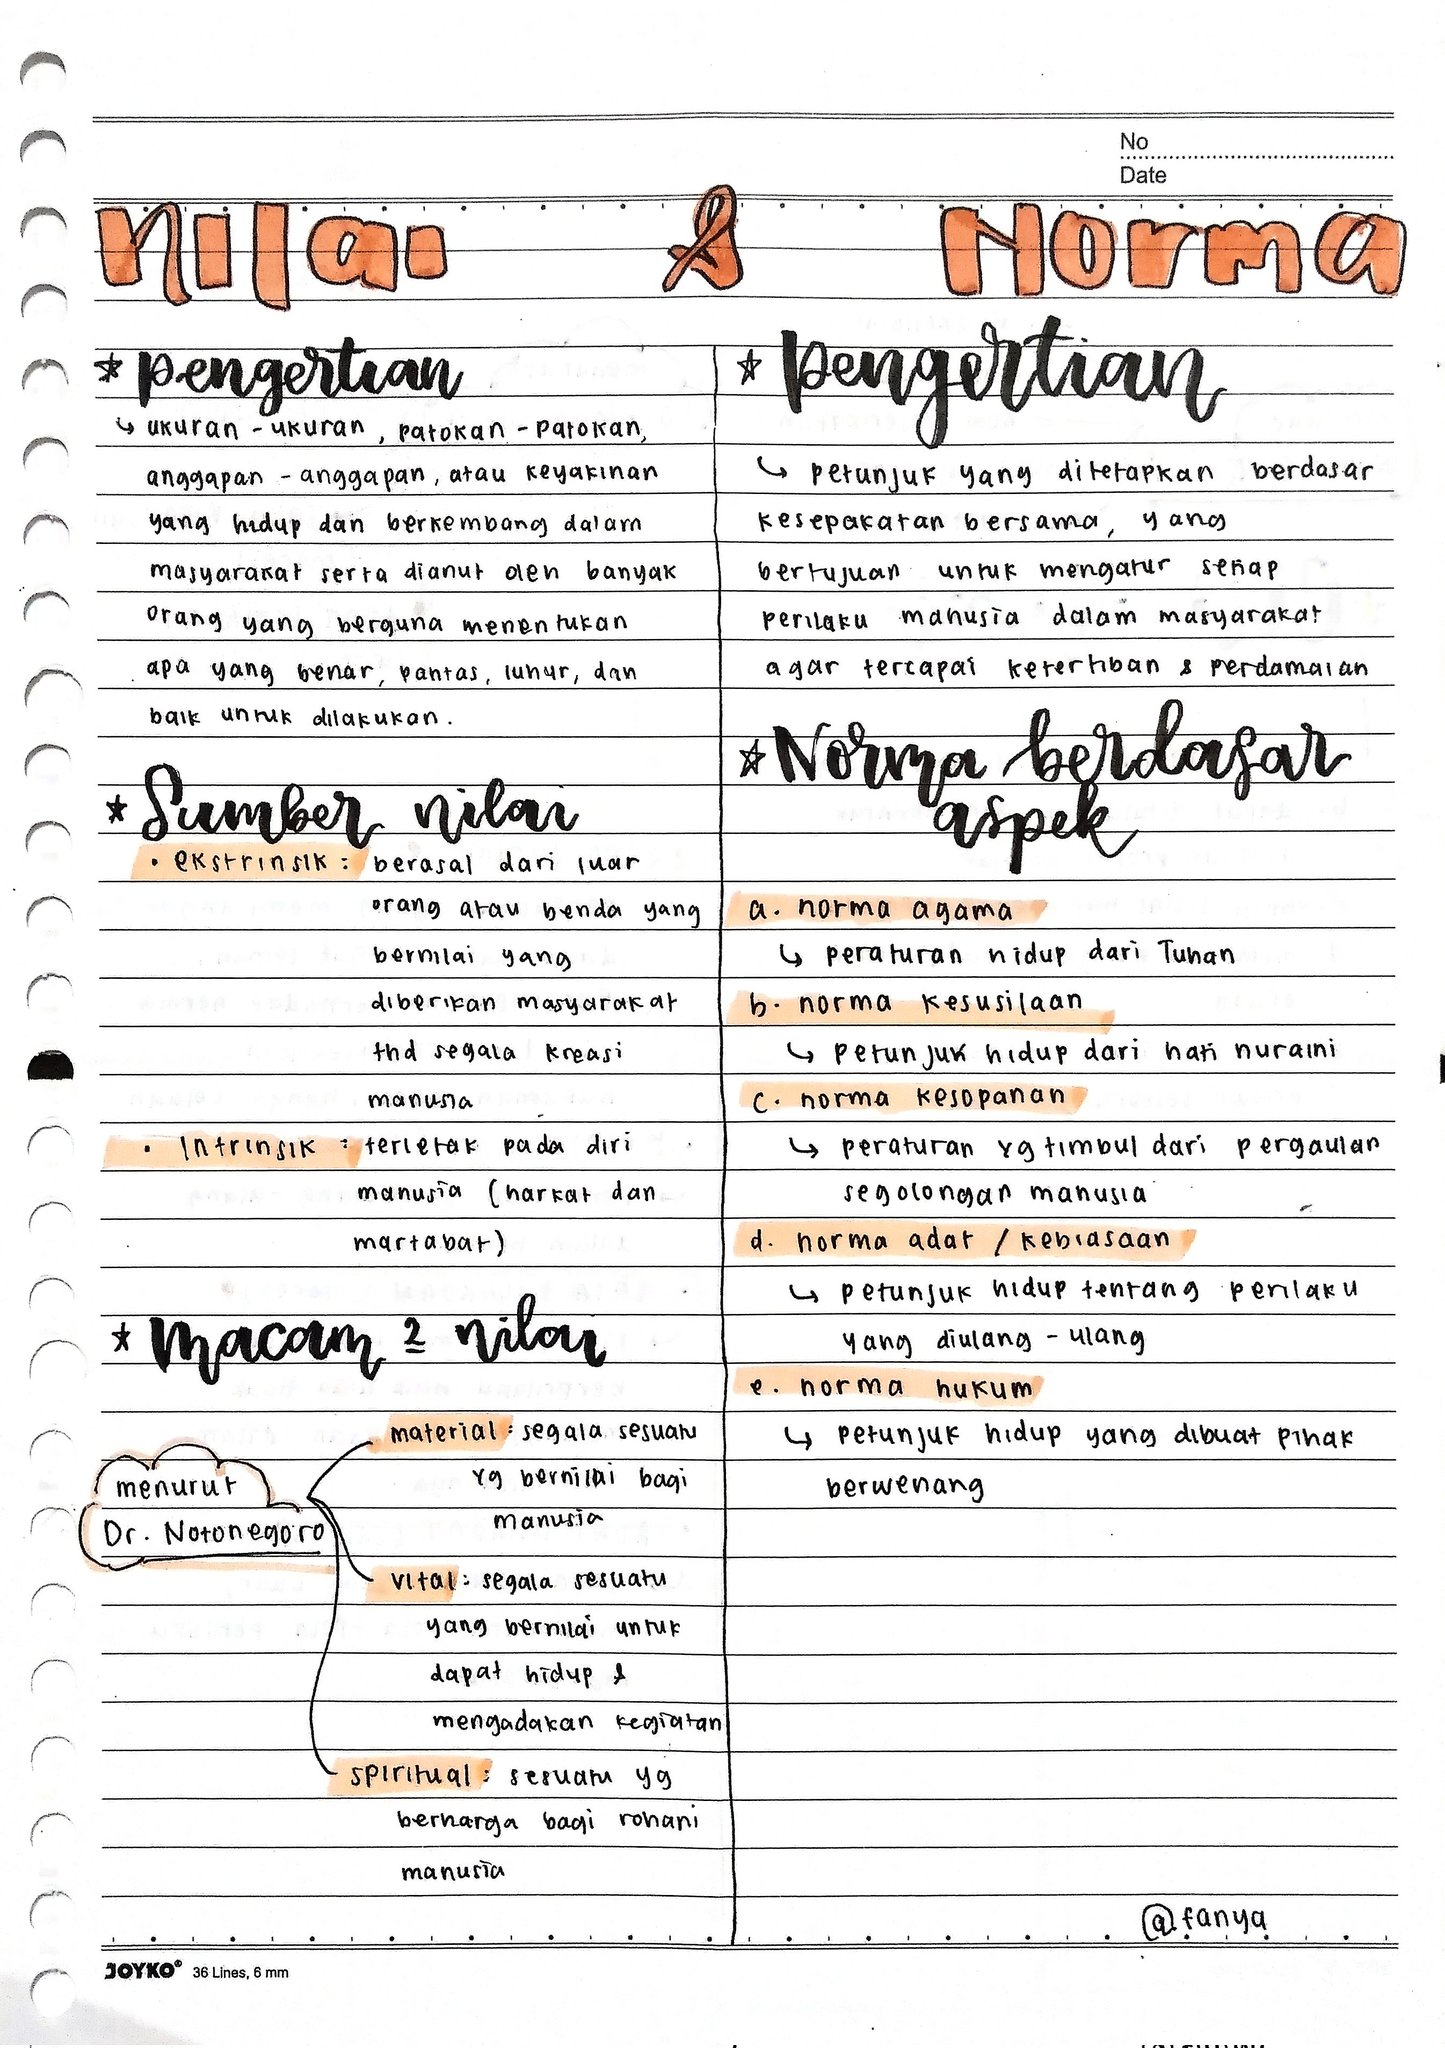 No
Date
Nilai & Norma
* pengertian
↳ ukuran - ukuran, patokan - patokan,
anggapan - anggapan, atau keyakinan
yang hidup dan berkembang dalam
masyarakat serta dianut oleh banyak
orang yang berguna menentukan
apa yang benar, pantas, luhur, dan
baik untuk dilakukan.
* Sumber nilai
• ekstrinsik : berasal dari luar
orang atau benda yang
bernilai yang
diberikan masyarakat
thd segala kreasi
manusia
• Intrinsik : terletak pada diri
manusia (harkat dan
martabat)
* Macam 2 nilai
menurut
Dr. Notonegoro
material : segala sesuatu
yg bernilai bagi
manusia
vital : segala sesuatu
yang bernilai untuk
dapat hidup &
mengadakan kegiatan
spiritual : sesuatu yg
berharga bagi rohani
manusia
* Pengertian
↳ petunjuk yang ditetapkan berdasar
kesepakatan bersama, yang
bertujuan untuk mengatur setiap
perilaku manusia dalam masyarakat
agar tercapai ketertiban & perdamaian
* Norma berdasar
aspek
a. norma agama
↳ peraturan hidup dari Tuhan
b. norma kesusilaan
↳ petunjuk hidup dari hati nuraini
c. norma kesopanan
↳ peraturan yg timbul dari pergaulan
segolongan manusia
d. norma adat / kebiasaan
↳ petunjuk hidup tentang perilaku
yang diulang - ulang
e. norma hukum
↳ petunjuk hidup yang dibuat pihak
berwenang
@fanya
JOYKO® 36 Lines, 6 mm